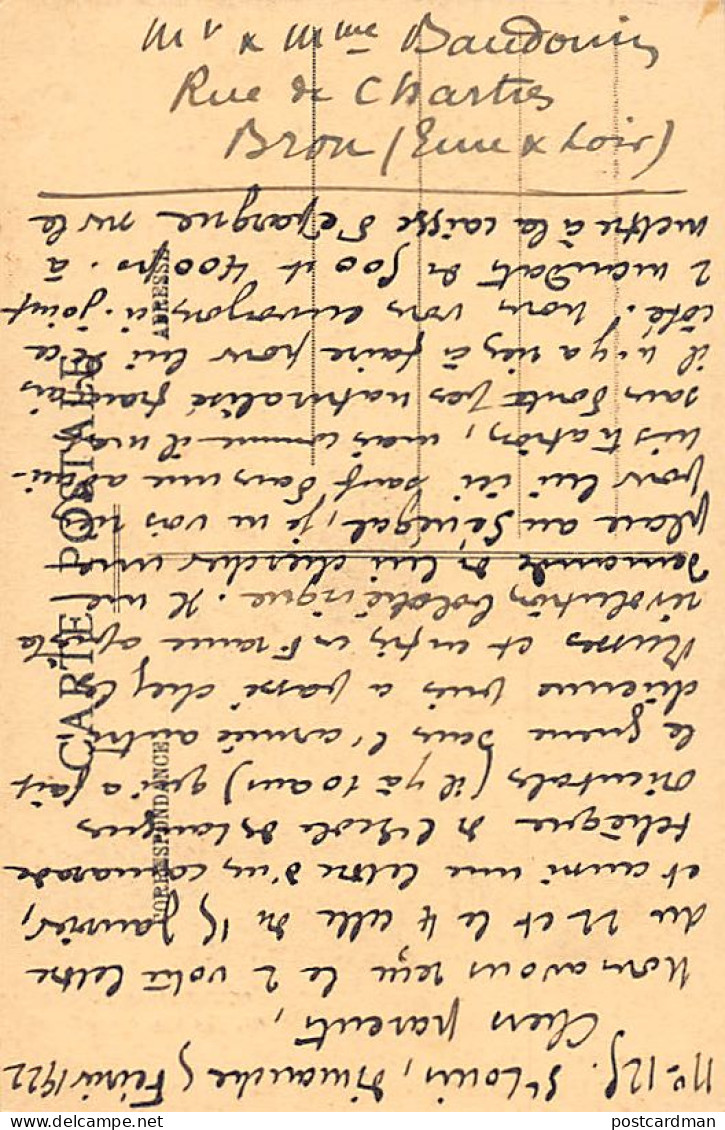 Mr & Mme Baudouin
Rue de Chartres
Brou (Eure & Loir)
CARTE POSTALE
CORRESPONDANCE
ADRESSE
N° 125. St Louis, Dimanche 5 Février 1922
Chers parents,
Nous avons reçu le 2 votre lettre
du 22 et le 4 celle du 15 Janvier,
et aussi une lettre d'un camarade
tchèque de l'Ecole des Langues
Orientales (il y a 10 ans) qui a fait
la guerre dans l'armée autri
chienne puis a passé chez les
Russes et enfin en France après la
révolution bolchévique. Il me
demande de lui chercher une
place au Sénégal, je ne vois rien
pour lui ici sauf dans une admi-
nistration, mais comme il n'est
sans doute pas naturalisé français
il n'y a rien à faire pour lui de ce
côté. Nous vous envoyons ci-joint
2 mandats de 500 et 400 frs. à
mettre à la caisse d'épargne sur le
postcardman